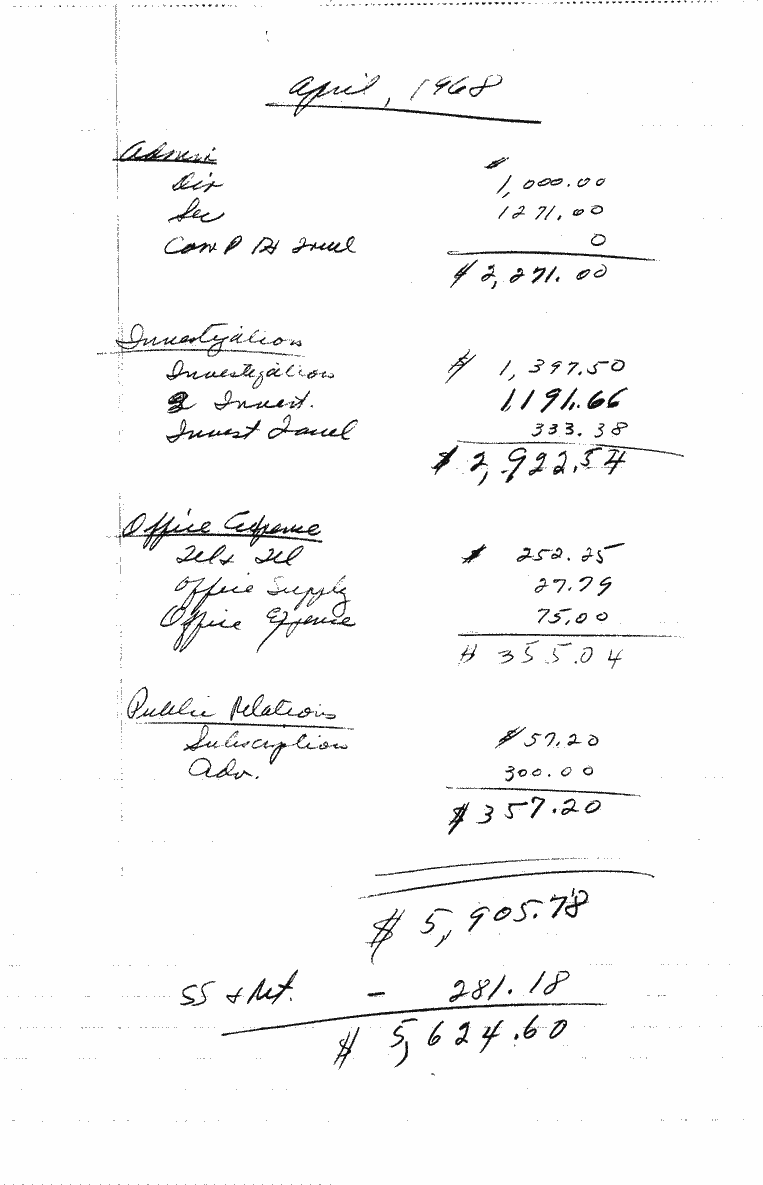 April, 1968
Admin $
Dir 1,000.00
Sec 1271.00
Travel 0
$ 2,271.00
Investigations
Investigations $ 1,397.50
2 Invest. 1,191.66
Invest Travel 333.38
$ 2,922.54
Office Expense
Tel & Tel $ 252.25
Office Supply 27.79
Office Expense 75.00
$ 355.04
Public Relations
Subscription $ 57.20
Adv. 300.00
$ 357.20
$ 5,905.78
SS & Ret. - 281.18
$ 5,624.60